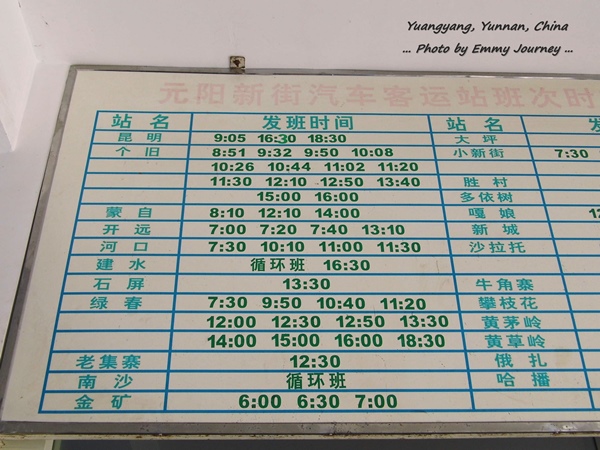 Yuangyang, Yunnan, China
... Photo by Emmy Journey ...
元阳新街汽车客运站班次时
站 名 发班时间 站 名 发
昆 明 9:05 16:30 18:30 大 坪
个 旧 8:51 9:32 9:50 10:08 小新街 7:30
10:26 10:44 11:02 11:20
11:30 12:10 12:50 13:40 胜 村
15:00 16:00 多依树
蒙 自 8:10 12:10 14:00 嘎 娘
开 远 7:00 7:20 7:40 13:10 新 城
河 口 7:30 10:10 11:00 11:30 沙拉托
建 水 循环班 16:30
石 屏 13:30 牛角寨
绿 春 7:30 9:50 10:40 11:20 攀枝花
12:00 12:30 12:50 13:30 黄茅岭
14:00 15:00 16:00 18:30 黄草岭
老集寨 12:30 俄 扎
南 沙 循环班 哈 播
金 矿 6:00 6:30 7:00